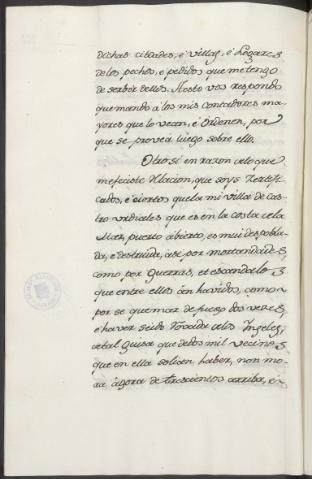 dichas cibdades, é villas, é Logares
de los pechos, é pedidos que me tengo
de serbir dellos. A esto vos respondo
que mando á los mis contadores ma
yores que lo vean, é ordenen, por
que se provea luego sobre ello.
Otrosi en razon de lo que
me feciste relacion, que soys zertifi
cados, é ciertos que la mi villa de Cas
tro urdiales que es en la costa de la
Mar, puerto abierto, es mui despobla
da, é destruida, asi por mortandades,
como por Guerras, et escandalos
que entre ellos han havidos, como
por se quemar de fuego dos veces,
é haver seido Robada de los Ingleses,
de tal guisa que de dos mil vecinos
que en ella solian haber, non mo
ra agora de trescientos arriba, é